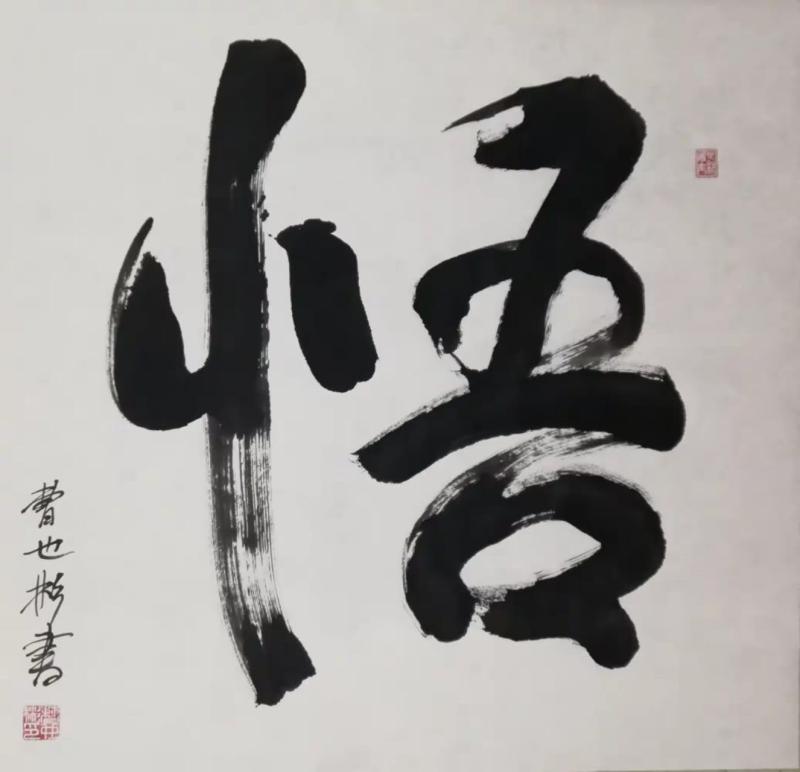 悟
曹也彬書